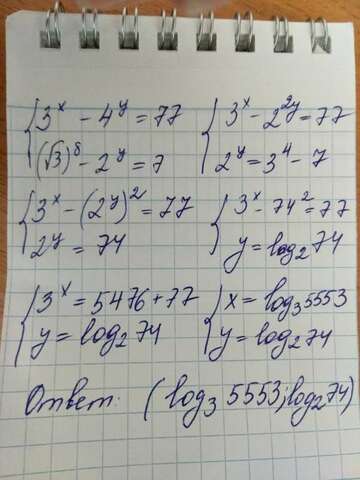 3ˣ - 4ʸ = 77
(√3)⁸ - 2ʸ = 7
3ˣ - 2²ʸ = 77
2ʸ = 3⁴ - 7
3ˣ - (2ʸ)² = 77
2ʸ = 74
3ˣ - 74² = 77
y = log₂74
3ˣ = 5476 + 77
y = log₂74
x = log₃5553
y = log₂74
Ответ: (log₃5553; log₂74)